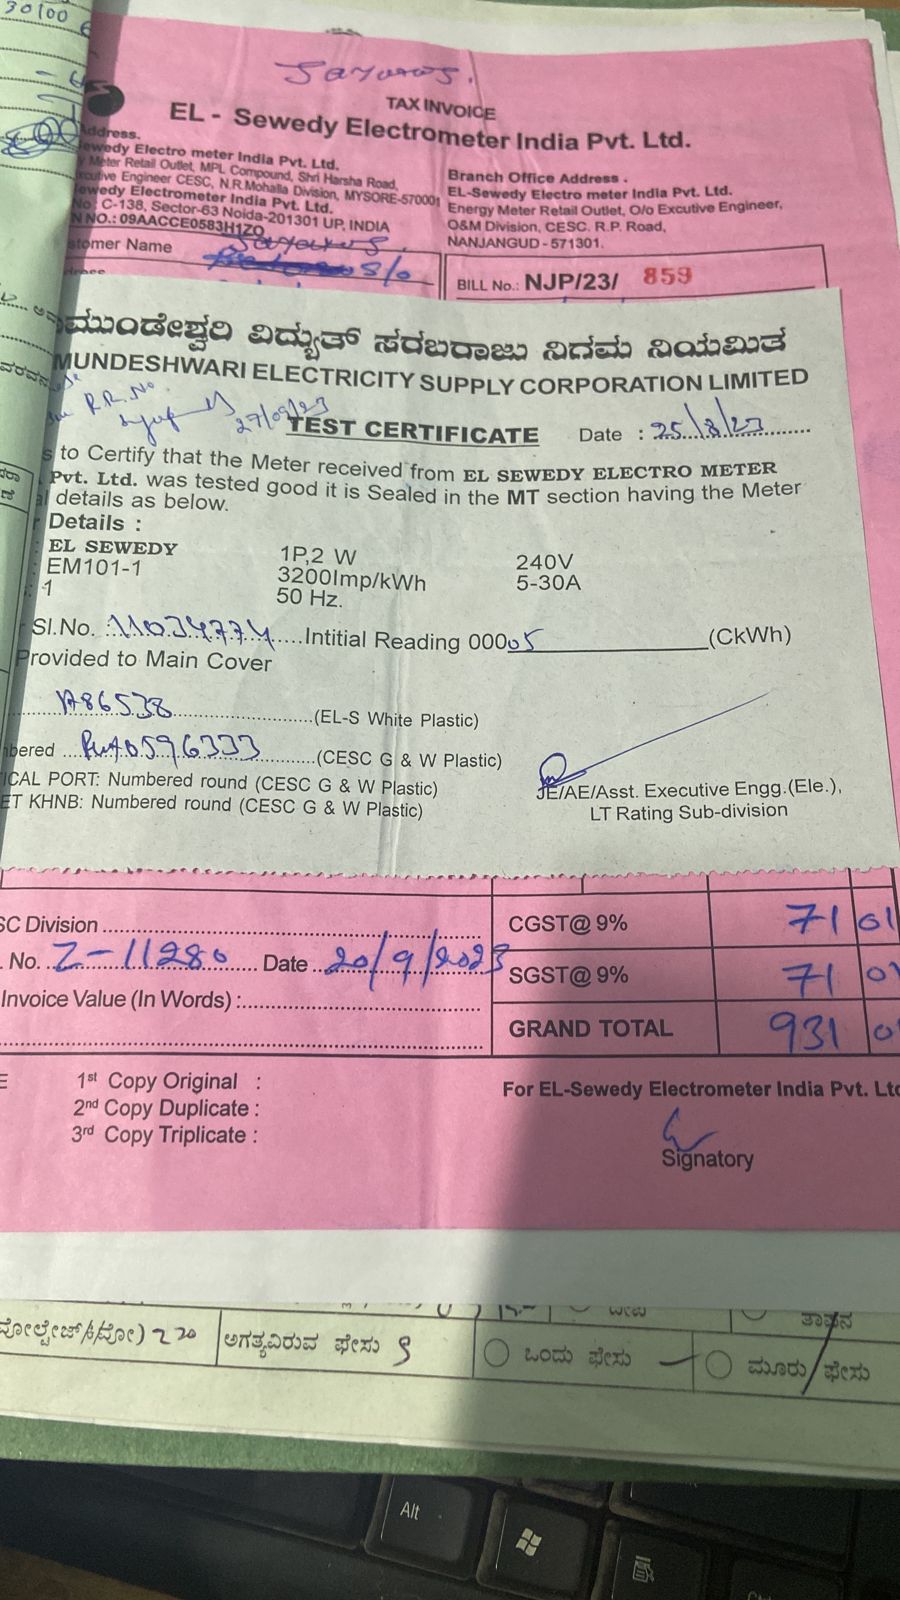 30/00
TAX INVOICE
EL - Sewedy Electrometer India Pvt. Ltd.
Address.
ewedy Electro meter India Pvt. Ltd.
Meter Retail Outlet, MPL Compound, Shri Harsha Road,
xcutive Engineer CESC, N.R.Mohalla Division, MYSORE-570001
ewedy Electrometer India Pvt. Ltd.
No: C-138, Sector-63 Noida-201301 UP, INDIA
N NO.: 09AACCE0583H1ZO
Branch Office Address .
EL-Sewedy Electro meter India Pvt. Ltd.
Energy Meter Retail Outlet, O/o Excutive Engineer,
O&M Division, CESC. R.P. Road,
NANJANGUD - 571301.
stomer Name
S/o
BILL No.: NJP/23/ 859
ಮುಂಡೇಶ್ವರಿ ವಿದ್ಯುತ್ ಸರಬರಾಜು ನಿಗಮ ನಿಯಮಿತ
MUNDESHWARI ELECTRICITY SUPPLY CORPORATION LIMITED
R.R.No
27/09/23
TEST CERTIFICATE Date : 25/8/23
s to Certify that the Meter received from EL SEWEDY ELECTRO METER
Pvt. Ltd. was tested good it is Sealed in the MT section having the Meter
al details as below.
Details :
EL SEWEDY 1P,2 W 240V
EM101-1 3200Imp/kWh 5-30A
1 50 Hz.
Sl.No. 11034774 Intitial Reading 00005 (CkWh)
Provided to Main Cover
1786538 (EL-S White Plastic)
bered 0596333 (CESC G & W Plastic)
ICAL PORT: Numbered round (CESC G & W Plastic)
ET KHNB: Numbered round (CESC G & W Plastic)
JE/AE/Asst. Executive Engg.(Ele.),
LT Rating Sub-division
SC Division CGST@ 9% 71 01
No. Z-11280 Date 20/9/2023 SGST@ 9% 71 01
Invoice Value (In Words) :
GRAND TOTAL 931 0
1st Copy Original :
2nd Copy Duplicate :
3rd Copy Triplicate :
For EL-Sewedy Electrometer India Pvt. Ltd
Signatory
220 ಅಗತ್ಯವಿರುವ ಫೇಸು
ಒಂದು ಫೇಸು ಮೂರು ಫೇಸು
Alt